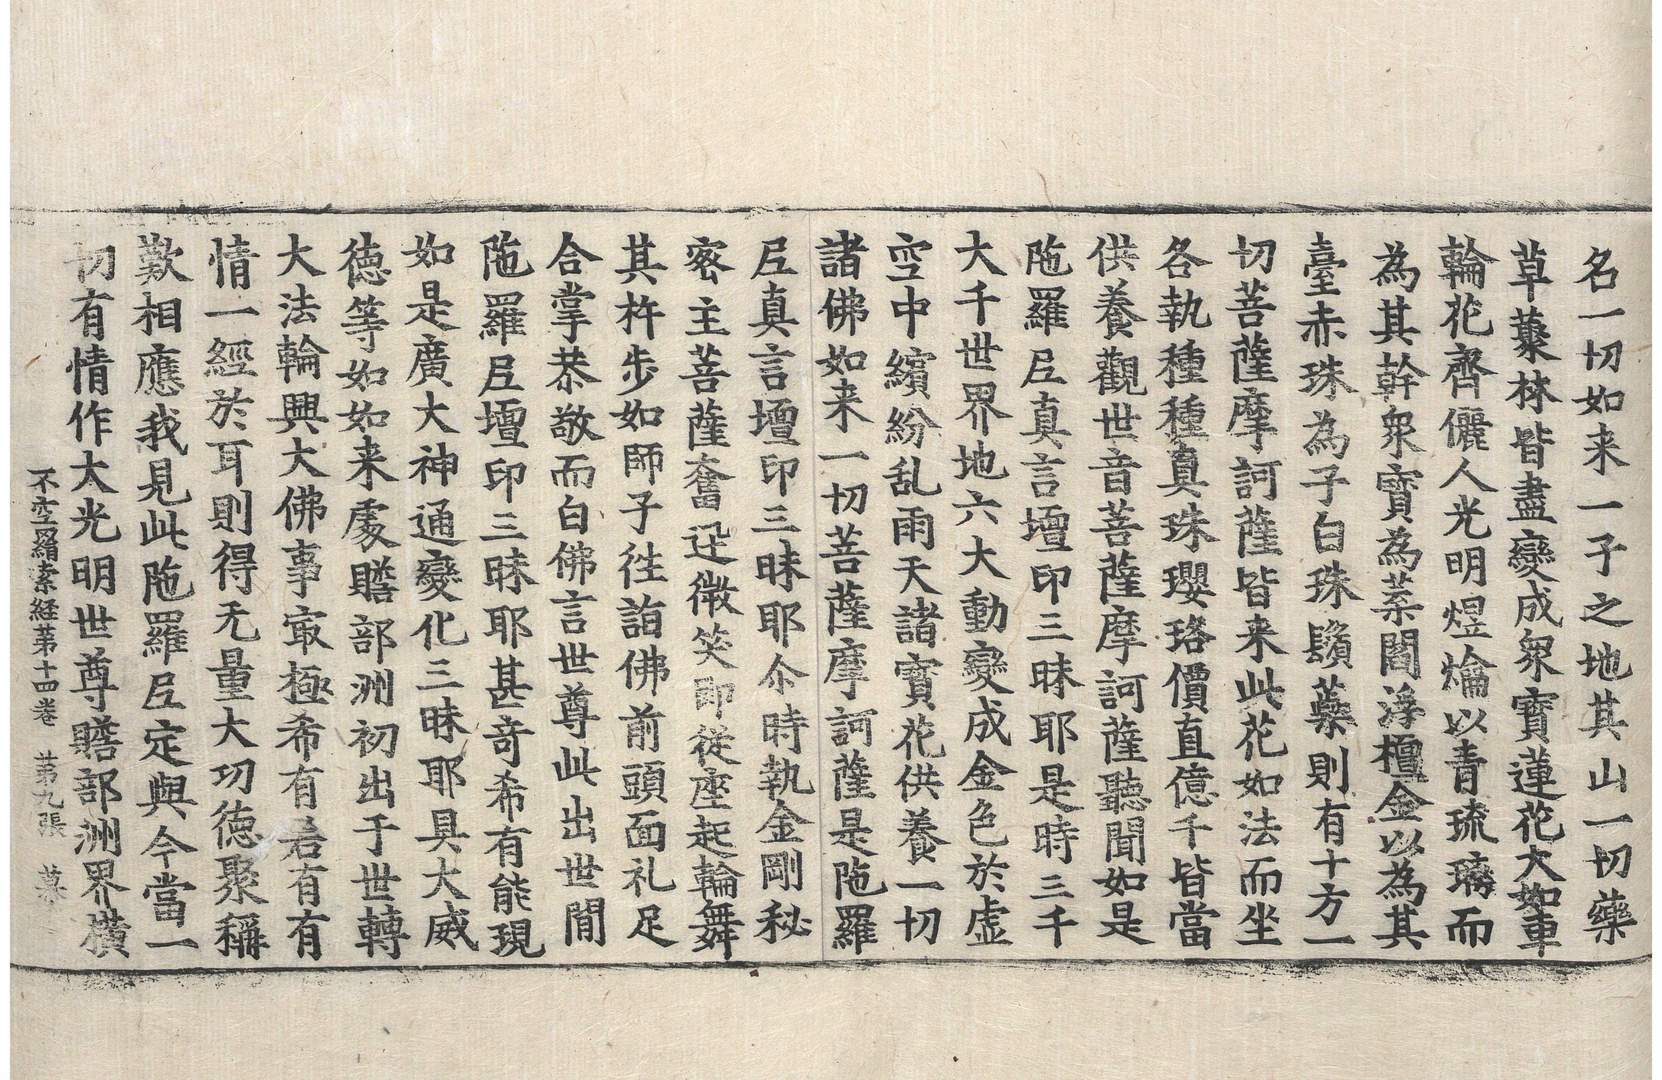 名一切如来一子之地其山一切藥
草藂林皆盡變成衆寳蓮花大如車
輪花齊儷人光明煜爚以青琉璃而
為其幹衆寳為葉閻浮檀金以為其
臺赤珠為子白珠鬚蘂則有十方一
切菩薩摩訶薩皆来此花如法而坐
各執種種真珠瓔珞價直億千皆當
供養觀世音菩薩摩訶薩聽聞如是
陁羅𡰱真言壇印三昧耶是時三千
大千世界地六大動變成金色於虚
空中繽紛乱雨天諸寳花供養一切
諸佛如来一切菩薩摩訶薩是陁羅
𡰱真言壇印三昧耶尒時執金剛秘
密主菩薩奮迅微笑即從座起輪舞
其杵步如師子徃詣佛前頭面礼足
合掌恭敬而白佛言世尊此出世間
陁羅𡰱壇印三昧耶甚奇希有能現
如是廣大神通變化三昧耶具大威
徳等如如来處贍部洲初出于世轉
大法輪興大佛事冣極希有若有有
情一經於耳則得无量大功徳聚稱
歎相應我見此陁羅𡰱定與今當一
切有情作大光明世尊贍部洲界横
不空羂索経苐十四卷 苐九張 慕